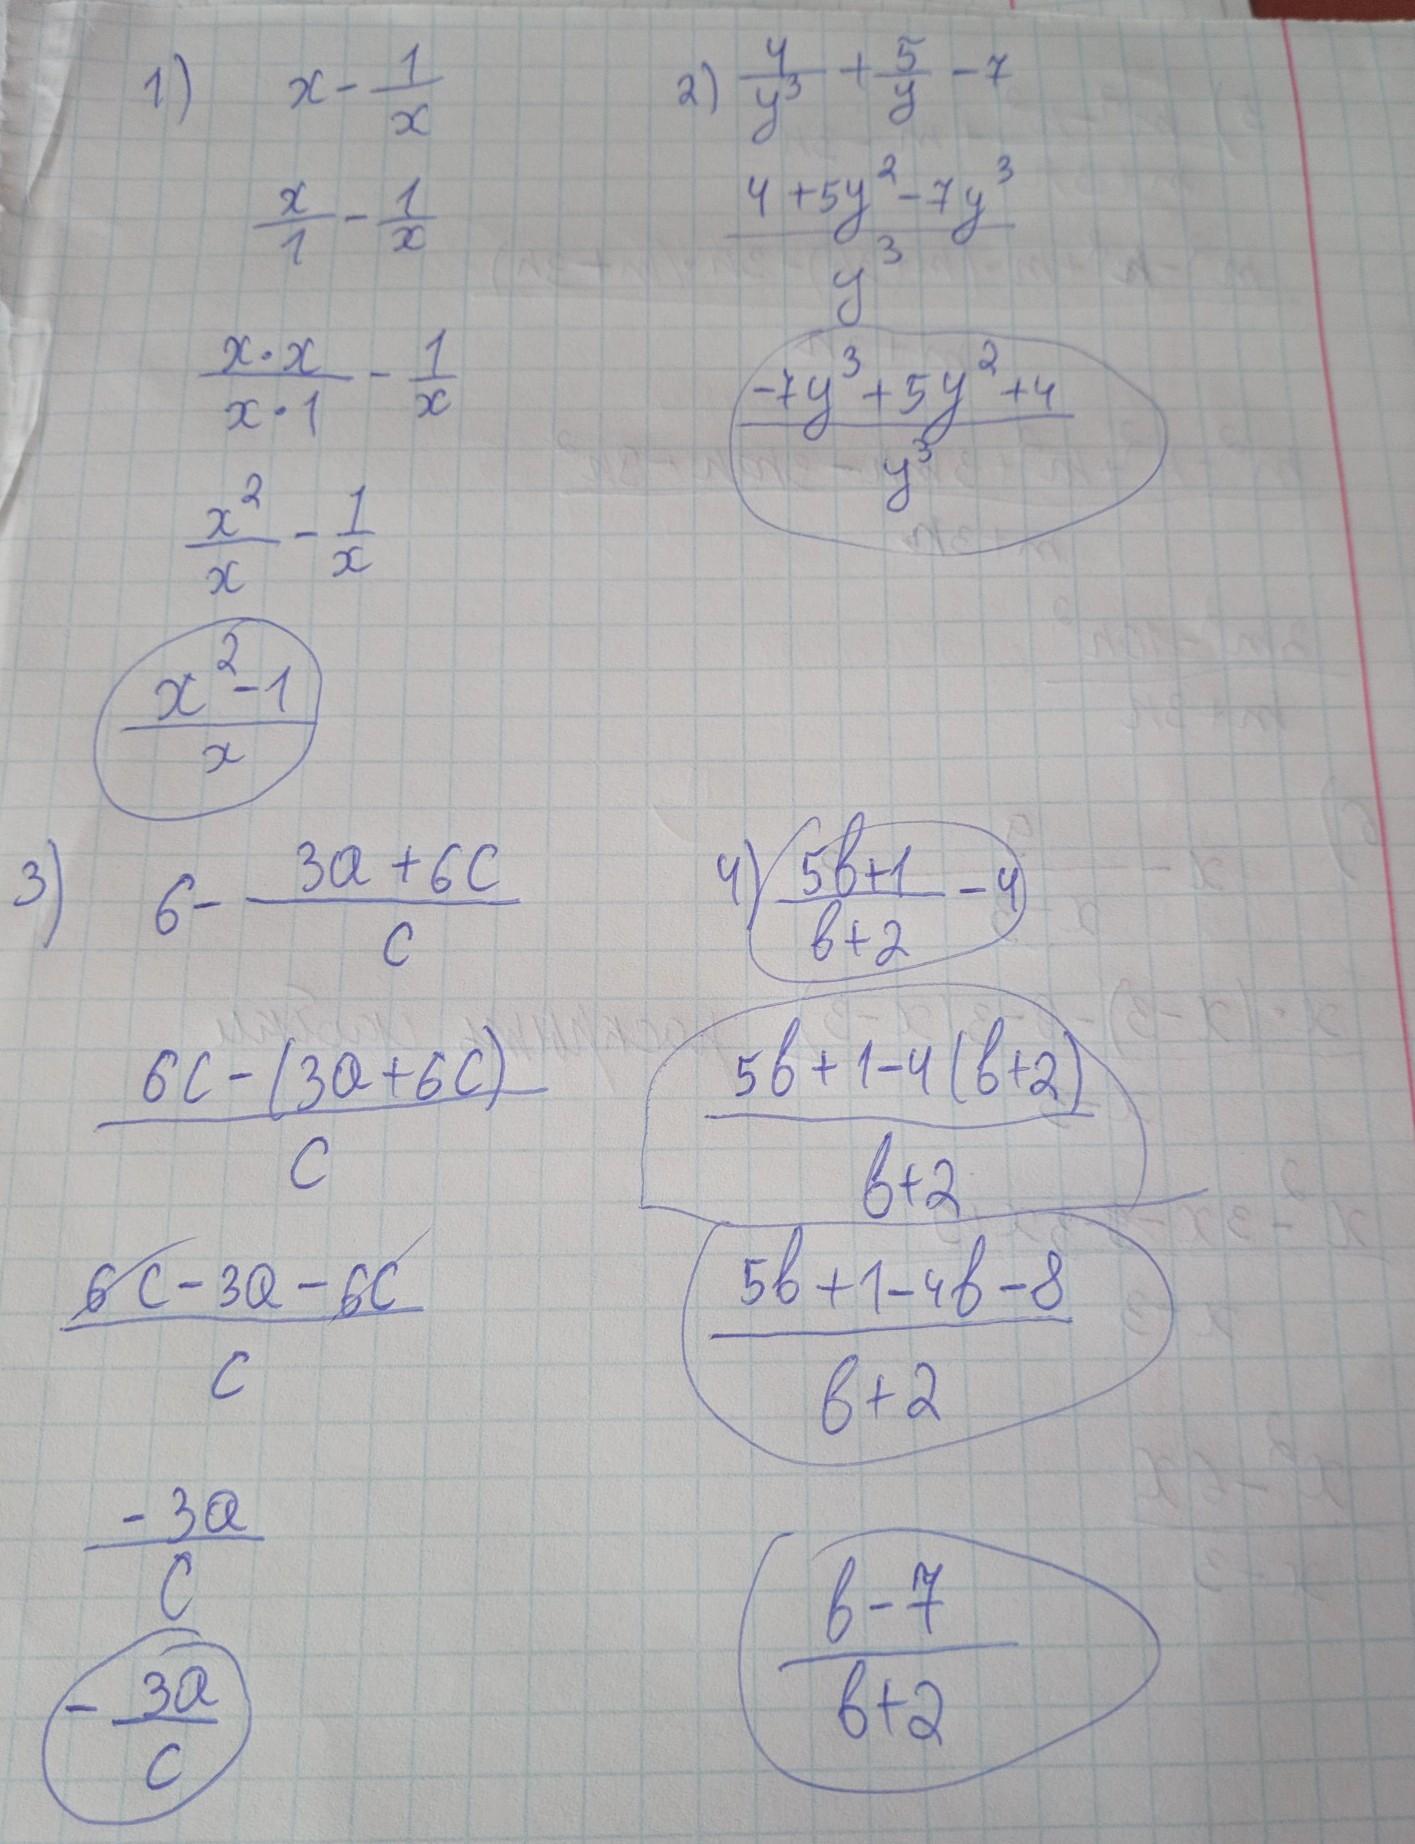 1) x - 1/x
x/1 - 1/x
x·x/x·1 - 1/x
x²/x - 1/x
x²-1/x
2) 4/y³ + 5/y - 7
4+5y²-7y³/y³
-7y³+5y²+4/y³
3) 6 - 3a+6c/c
6c-(3a+6c)/c
6c-3a-6c/c
-3a/c
- 3a/c
4) 5b+1/b+2 - 4
5b+1-4(b+2)/b+2
5b+1-4b-8/b+2
b-7/b+2